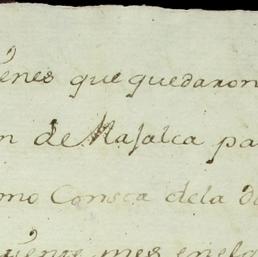 enes que quedaron
n de Majalca pa
mo Consta dela d
uente mes enela